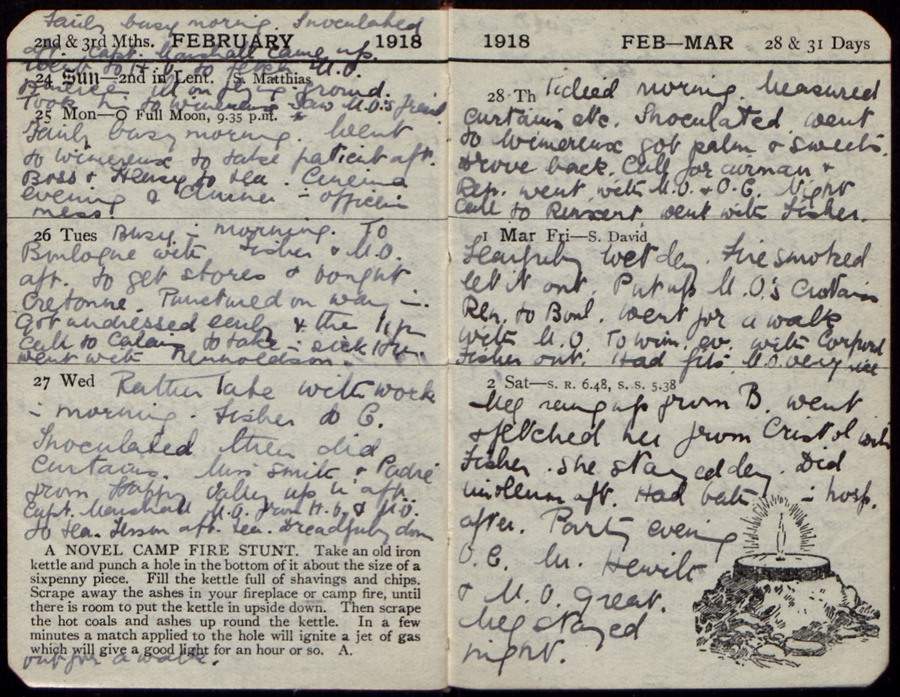 Fairly busy morning. Inoculated
2nd & 3rd Mths. FEBRUARY 1918
aft. Capt. Marshall came up.
Went to H.Q. to fetch M.O.
24 Sun—2nd in Lent. S. Matthias.
ill on flying ground.
Took him to Wimereux. Saw M.O.'s friend
25 Mon—O Full Moon, 9.35 p.m.
Fairly busy morning. Went
to Wimereux to take patient aft.
Boss & Henry to tea. Cinema
evening & dinner in officers
mess!
26 Tues Busy in morning. To
Boulogne with Fisher & M.O.
aft. to get stores & bought
Cretonne. Punctured on way in.
Got undressed early & the 11 pm
call to Calais to take in sick
went with
27 Wed Rather late with work
in morning. Fisher to C.
Inoculated then did
curtains. Miss Smith & Padré
from Happy Valley up in aft.
Capt. Marshall M.O. from H.Q. & M.O.
to tea. aft. tea. Dreadfully
A NOVEL CAMP FIRE STUNT. Take an old iron
kettle and punch a hole in the bottom of it about the size of a
sixpenny piece. Fill the kettle full of shavings and chips.
Scrape away the ashes in your fireplace or camp fire, until
there is room to put the kettle in upside down. Then scrape
the hot coals and ashes up round the kettle. In a few
minutes a match applied to the hole will ignite a jet of gas
which will give a good light for an hour or so. A.
out for a walk.
1918 FEB—MAR 28 & 31 Days
28 Th Tidied morning. Measured
curtains etc. Inoculated. went
to Wimereux got palm & sweets.
Drove back. Call for airman &
Rep. went with M.O. & O.C. Night
call to Rinxent, went with Fisher.
1 Mar Fri—S. David
Fearfully wet day. Fire smoked
let it out. Put up M.O.'s curtains
Ren. to Boul. Went for a walk
with M.O. To Wim. ev. with Corporal
Fisher out. Had fits. M.O. very nice
2 Sat—S. R. 6.48, S. S. 5.38
Meg rung up from B. went
& fetched her from Cristol with
Fisher. She stayed day. Did
linoleum aft. Had bath in hosp.
after. Party evening
O.C. Mr. Hewitt
& M.O. Great.
Meg stayed
night.